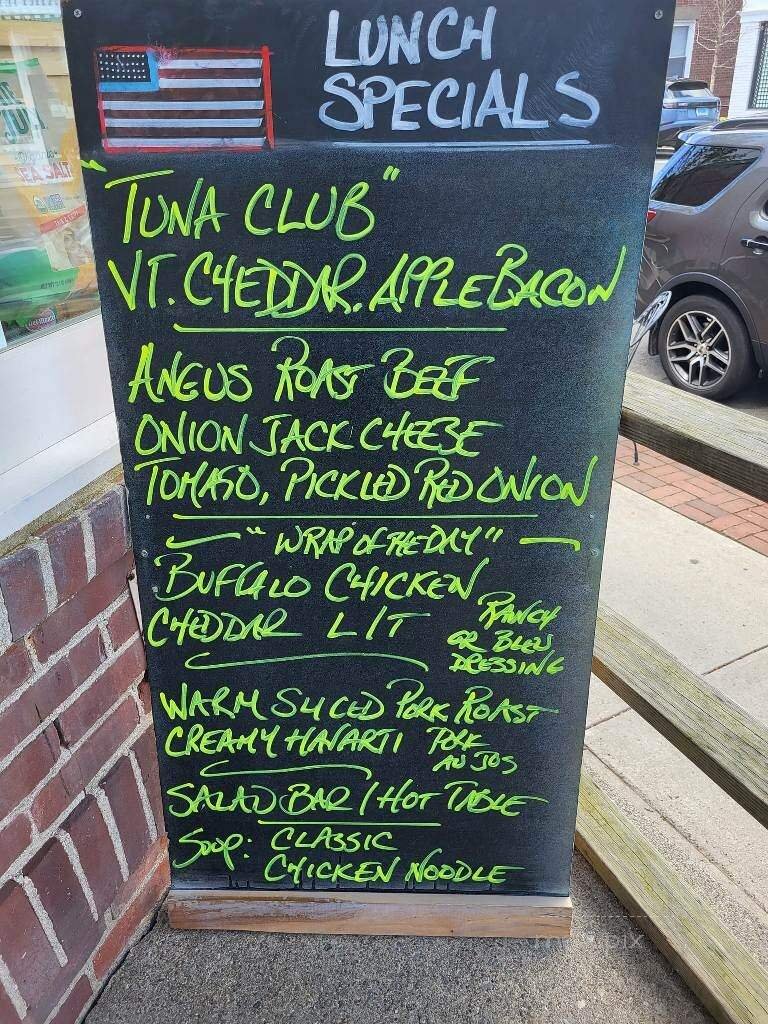 LUNCH
SPECIALS
"TUNA CLUB"
VT. CHEDDAR. APPLE BACON
ANGUS ROAST BEEF
ONION JACK CHEESE
TOMATO, PICKLED RED ONION
"WRAP OF THE DAY"
BUFFALO CHICKEN
CHEDDAR L/T
RANCH
OR BLEU
DRESSING
WARM SLICED PORK ROAST
CREAMY HAVARTI
PORK
AU JUS
SALAD BAR / HOT TABLE
SOUP: CLASSIC
CHICKEN NOODLE